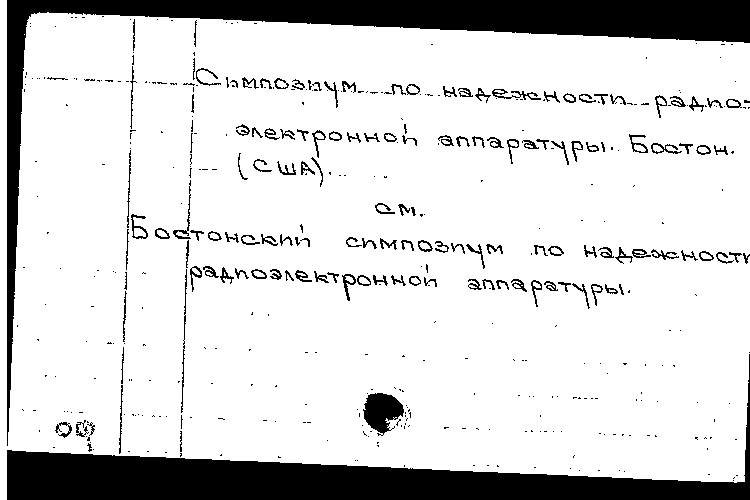 Симпозиум по надежности радио-
электронной аппаратуры. Бостон.
(США).
см.
Бостонский симпозиум по надежности
радиоэлектронной аппаратуры.